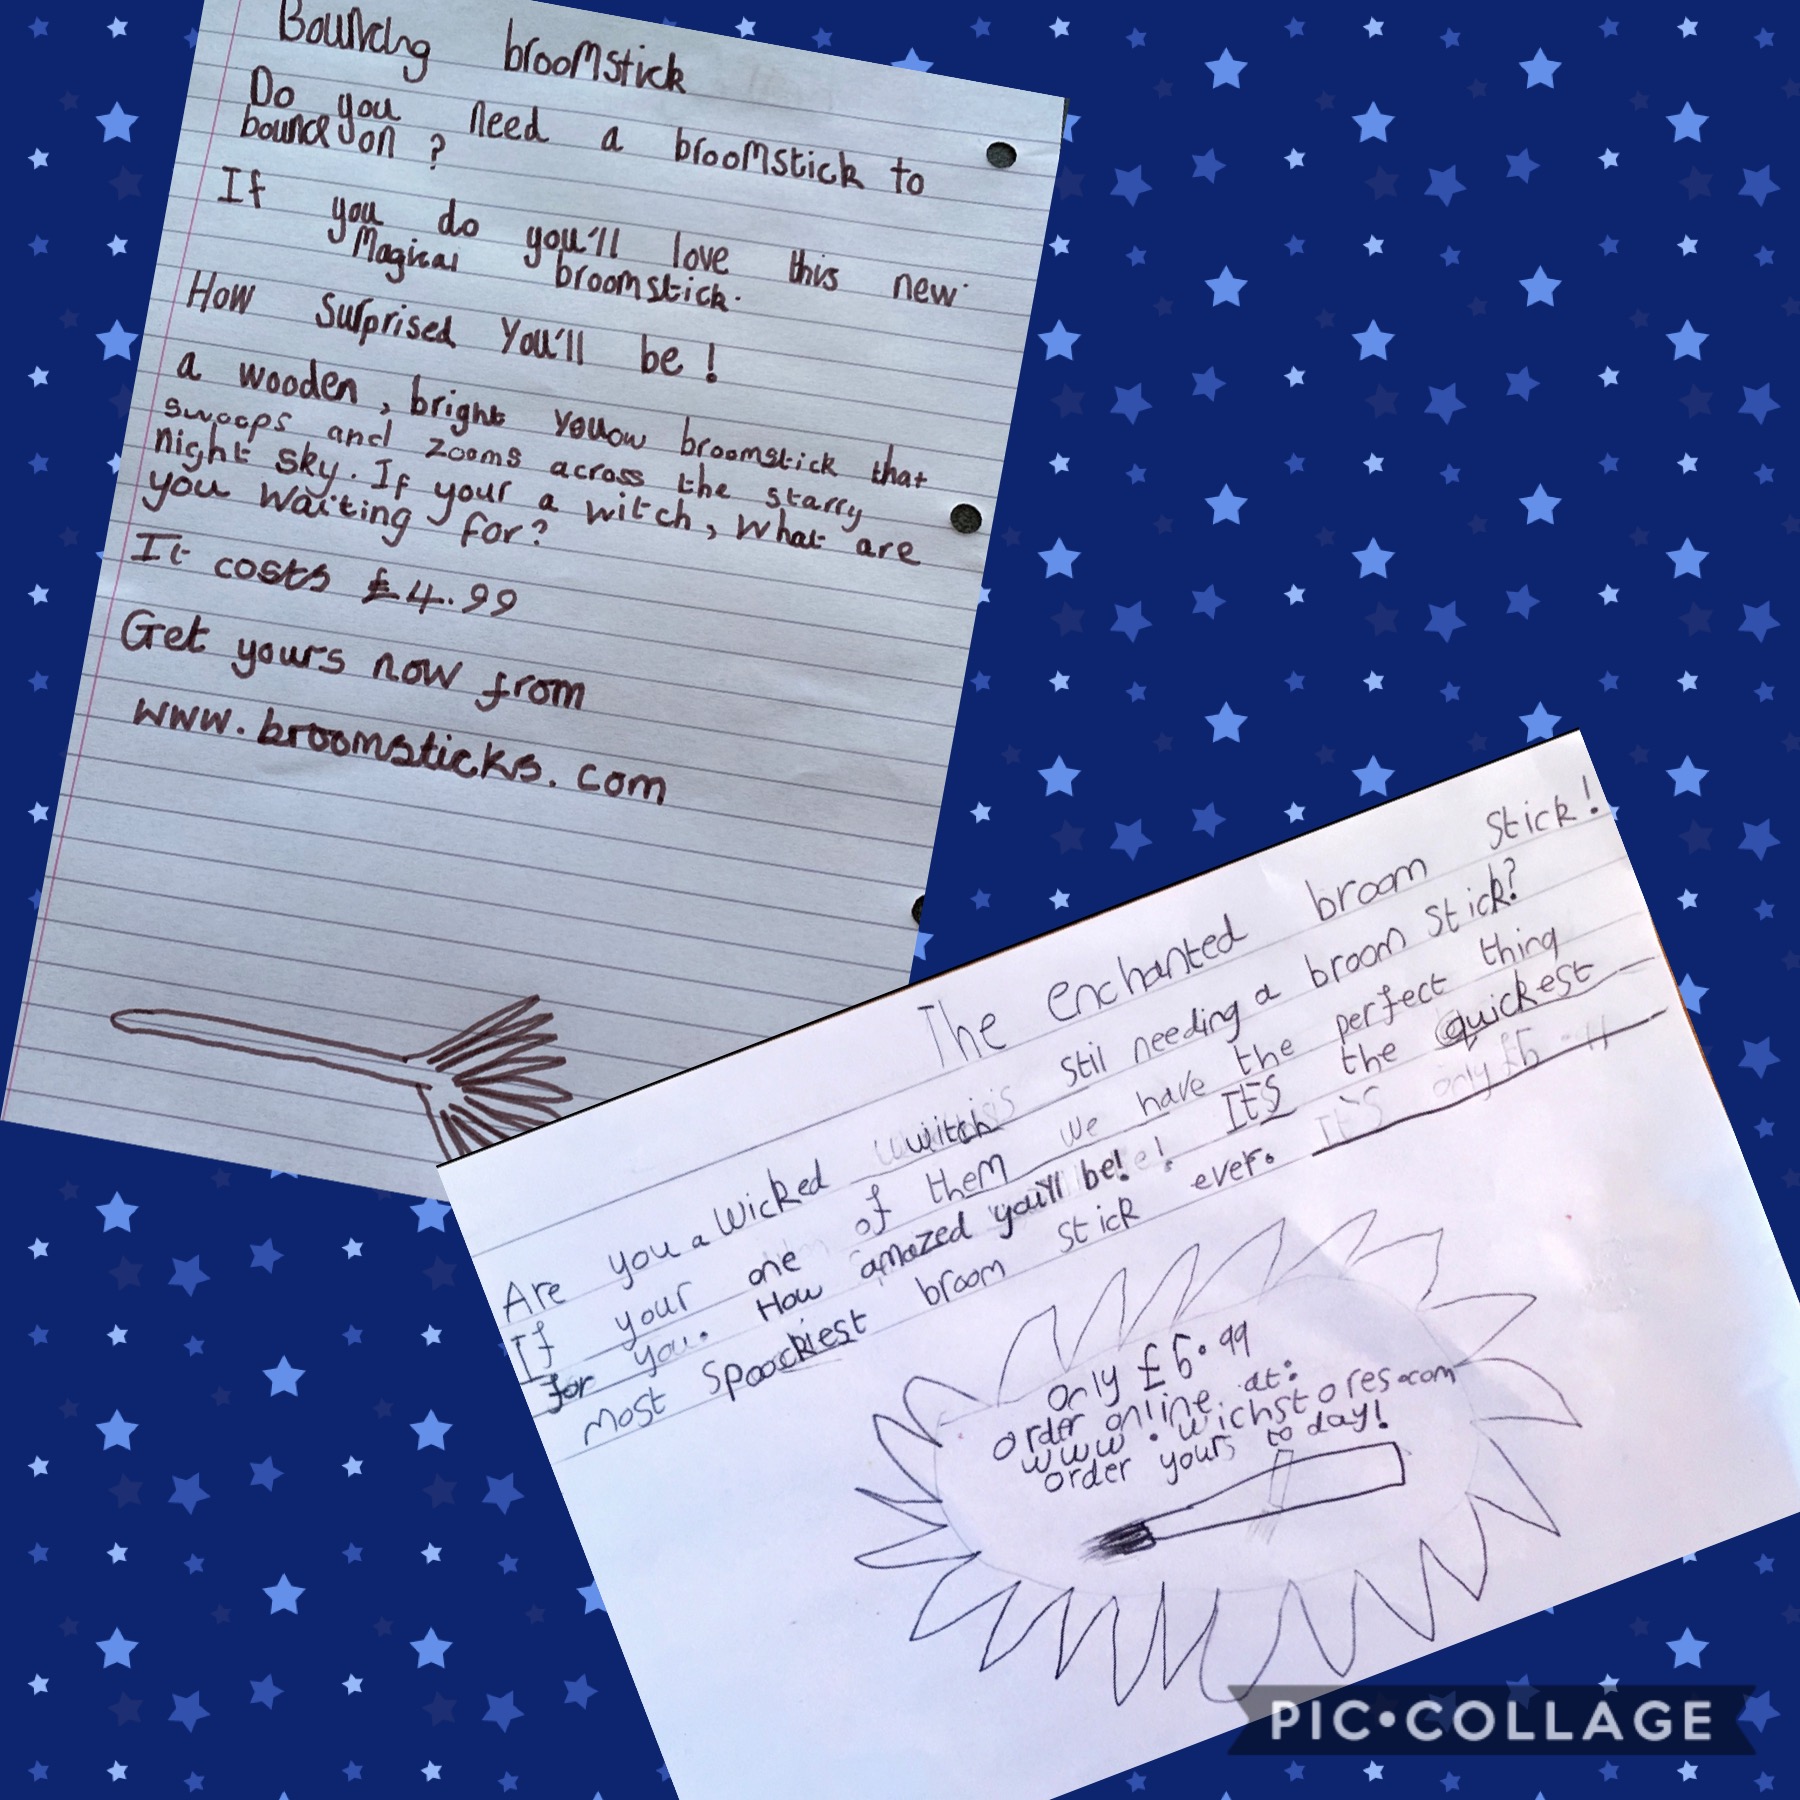 Bouncing broomstick
Do you need a broomstick to
bounce on ?
If you do you'll love this new
Magical broomstick.
How Surprised You'll be !
a wooden, bright yellow broomstick that
swoops and zooms across the starry
night sky. If your a witch, what are
you waiting for?
It costs £4.99
Get yours now from
www.broomsticks.com
The enchanted broom stick!
Are you a wicked witch still needing a broom stick?
If your one of them we have the perfect thing
for you. How amazed you'll be! It's the quickest
most spoockiest broom stick ever.
It's only £5
only £6.99
order online at:
www.wichstores.com
order yours to day!
PIC•COLLAGE